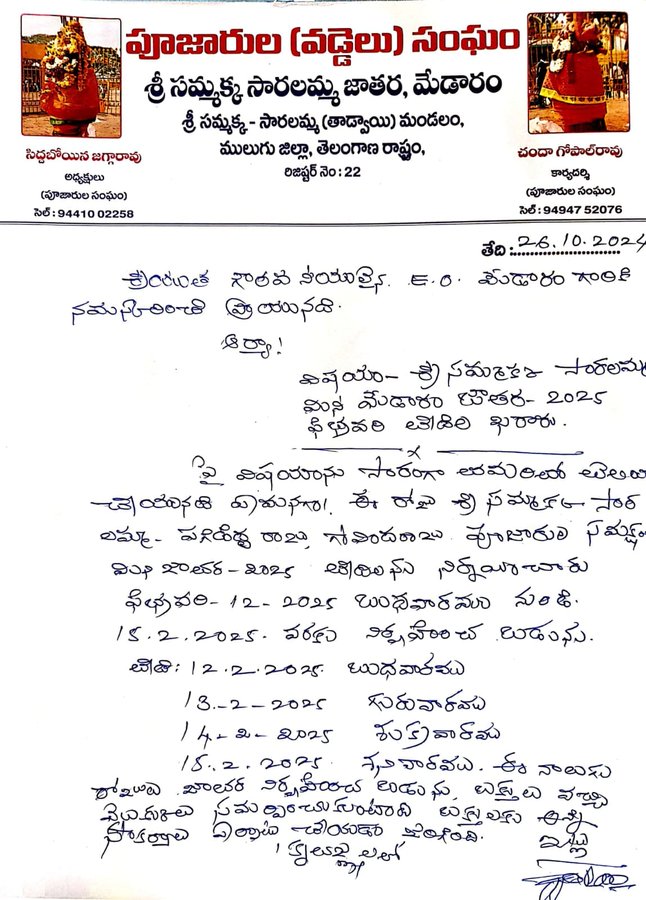 పూజారుల (వడ్డెలు) సంఘం
శ్రీ సమ్మక్క సారలమ్మ జాతర, మేడారం
శ్రీ సమ్మక్క - సారలమ్మ (తాడ్వాయి) మండలం,
ములుగు జిల్లా, తెలంగాణ రాష్ట్రం,
రిజిష్టర్ నెం : 22
సిద్దబోయిన జగ్గారావు
అధ్యక్షులు
(పూజారుల సంఘం)
సెల్ : 94410 02258
చందా గోపాల్‌రావు
కార్యదర్శి
(పూజారుల సంఘం)
సెల్ : 94947 52076
తేది : 26.10.2024
శ్రీయుత గౌరవనీయులైన E.O. మేడారం గారికి
నమస్కరించి వ్రాయునది.
ఆర్యా!
విషయం - శ్రీ సమ్మక్క సారలమ్మ
మిని మేడారం జాతర - 2025
ఫిబ్రవరి తేదీలు ఖరారు.
పై విషయాను సారంగా తమరితో తెలియ
చేయునది ఏమనగా! ఈ రోజు శ్రీ సమ్మక్క సార
లమ్మ - పగిడిద్ద రాజు, గోవిందరాజు పూజారుల సమక్షం
మిని జాతర - 2025 తేదీలను నిర్ణయించారు
ఫిబ్రవరి - 12 - 2025 బుధవారము నుండి
15.2.2025. వరకు నిర్వహించ బడును.
తేది : 12.2.2025. బుధవారము
13-2-2025 గురువారము
14-2-2025 శుక్రవారము
15.2.2025. శనివారము. ఈ నాలుగు
రోజులు జాతర నిర్వహించ బడును, భక్తులు వచ్చి
సమర్పించుకుంటారు భక్తులకు అన్ని
సౌకర్యాల ఏర్పాటు చేయడం జరిగింది.
ఇట్లు